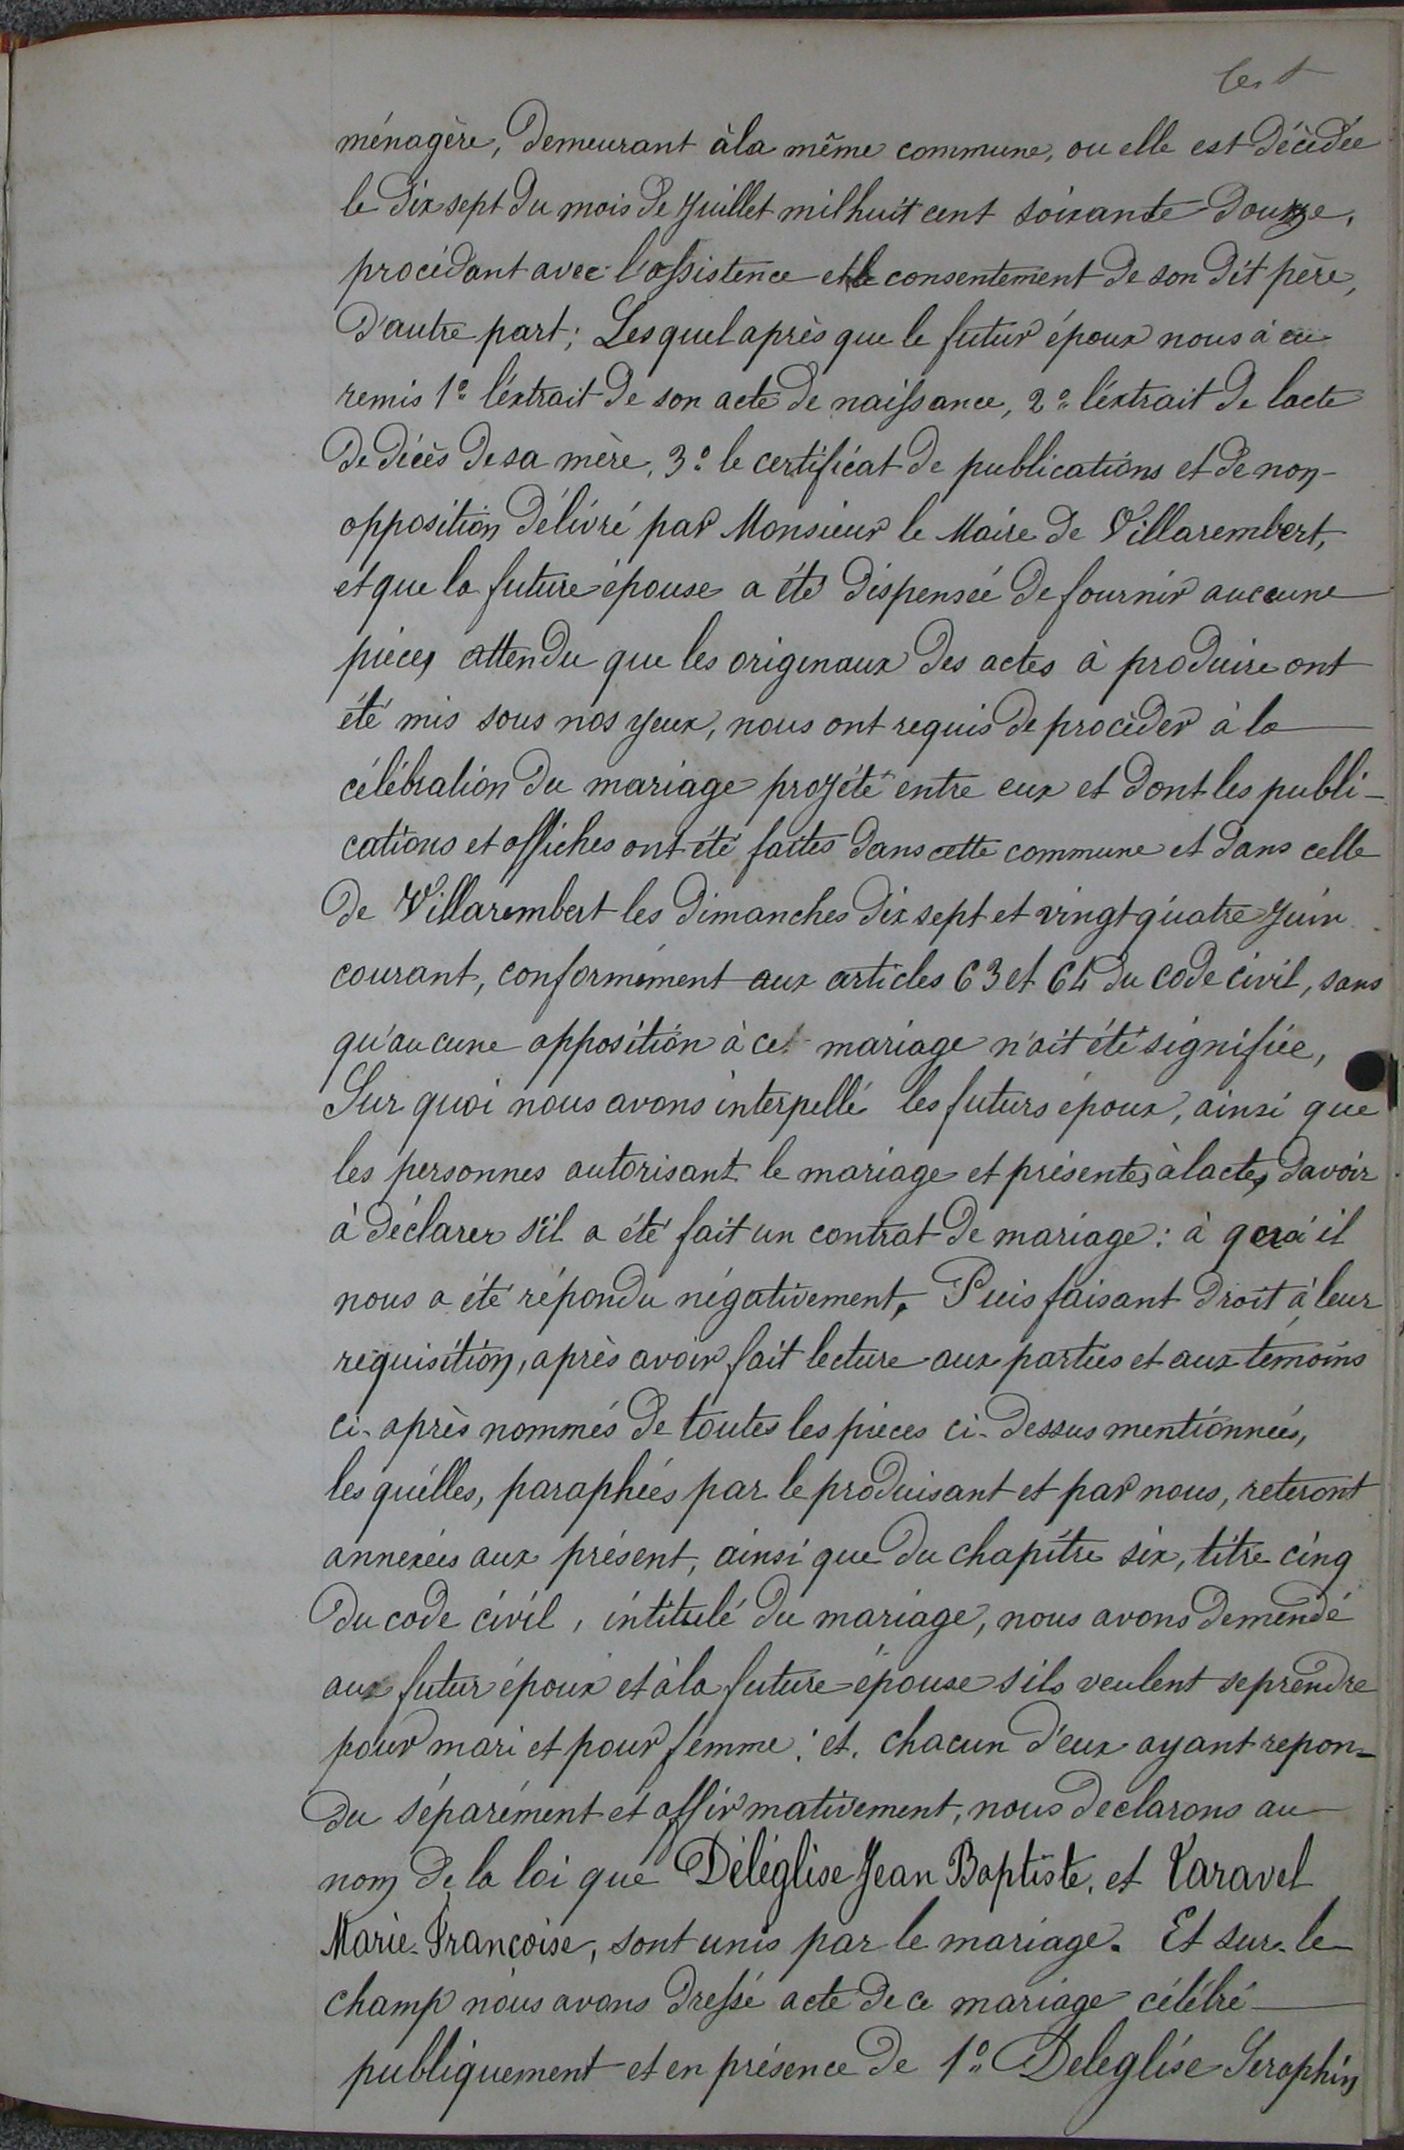 ménagère, demeurant à la même commune, ou elle est décèdée
le dix sept du mois de Juillet mil huit cent soixante douze,
procédant avec l'assistence et le consentement de son dit père,
d'autre part; Lesquel après que le futur époux nous à eu
remis 1º l'éxtrait de son acte de naissance, 2º l'éxtrait de lacte
de décès de sa mère, 3º le certificat de publications et de non-
opposition délivré par Monsieur le Maire de Villarembert,
et que la future épouse a été dispensée de fournir auccune
pièces attendu que les origenaux des actes à produire ont
été mis sous nos yeux, nous ont requis de procèder à la
célébration du mariage projété entre eux et dont les publi-
cations et affiches ont été faites dans cette commune et dans celle
de Villarembert les dimanches dix sept et vingt quatre Juin
courant, conformément aux articles 63 et 64 du code civil, sans
qu'aucune opposition à ce mariage n'ait été signifiée,
Sur quoi nous avons interpellé les futurs époux, ainsi que
les personnes autorisant le mariage et présentes à lacte, davoir
à déclarer s'il a été fait un contrat de mariage: à quoi il
nous a été répondu négativement, Puis faisant droit à leur
réquisition, après avoir fait lecture aux parties et aux témoins
ci-après nommés de toutes les pièces ci-dessus mentionnées,
les quélles, paraphées par le produisant et par nous, reteront
annexées aux présent, ainsi que du chapitre six, titre cinq
du code civil, intitulé du mariage, nous avons demendé
aux futur époux et à la future épouse s'ils veulent se prendre
pour mari et pour femme; et, chacun d'eux ayant repon-
du séparément et affirmativement, nous declarons au
nom de la loi que Déléglise Jean Baptiste, et Taravel
Marie-Françoise, sont unis par le mariage. Et sur-le
champ nous avons dressé acte de ce mariage célébré
publiquement et en présence de 1º Deleglise Seraphin